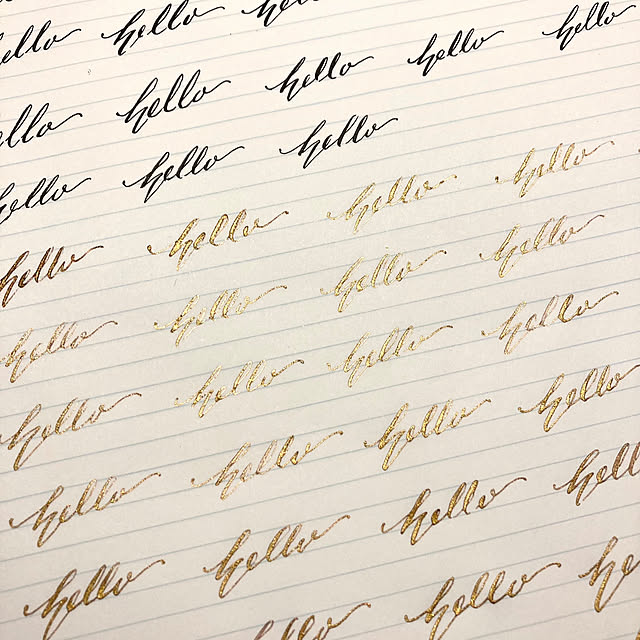 hello hello hello
hello hello hello hello hello
hello hello hello
hello hello hello hello
hello hello hello hello
hello hello hello hello
hello hello hello hello
hello hello hello hello
hello hello he